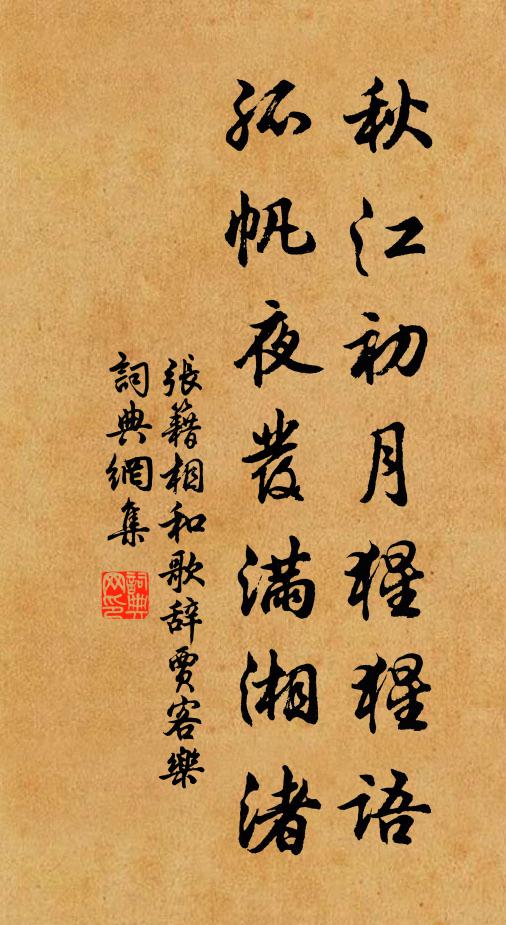 秋江初月猩猩语
孤帆夜發满湘渚
張籍相和歌辞賈客樂
詞典網集
詞典
网印